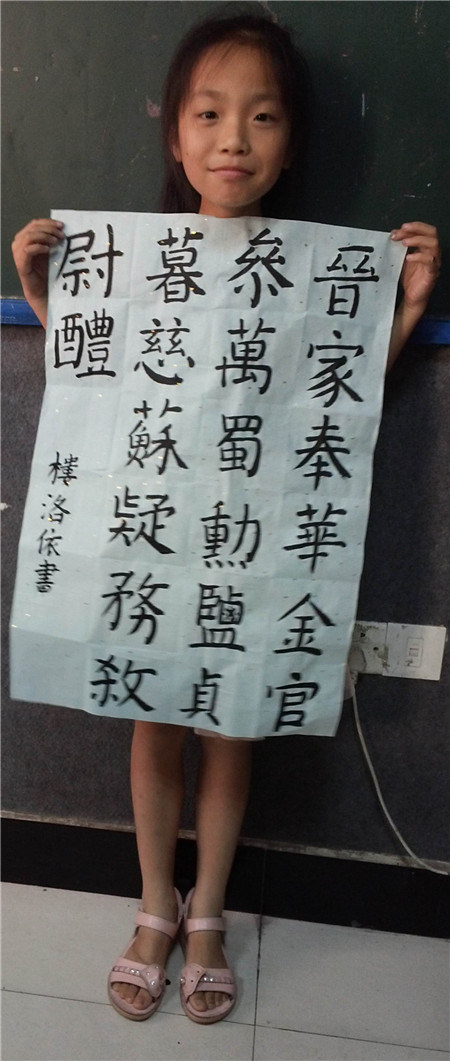 晉家奉華金官
叅萬蜀勳鹽貞
暮慈蘇疑務敎
尉醴
樓洛依書